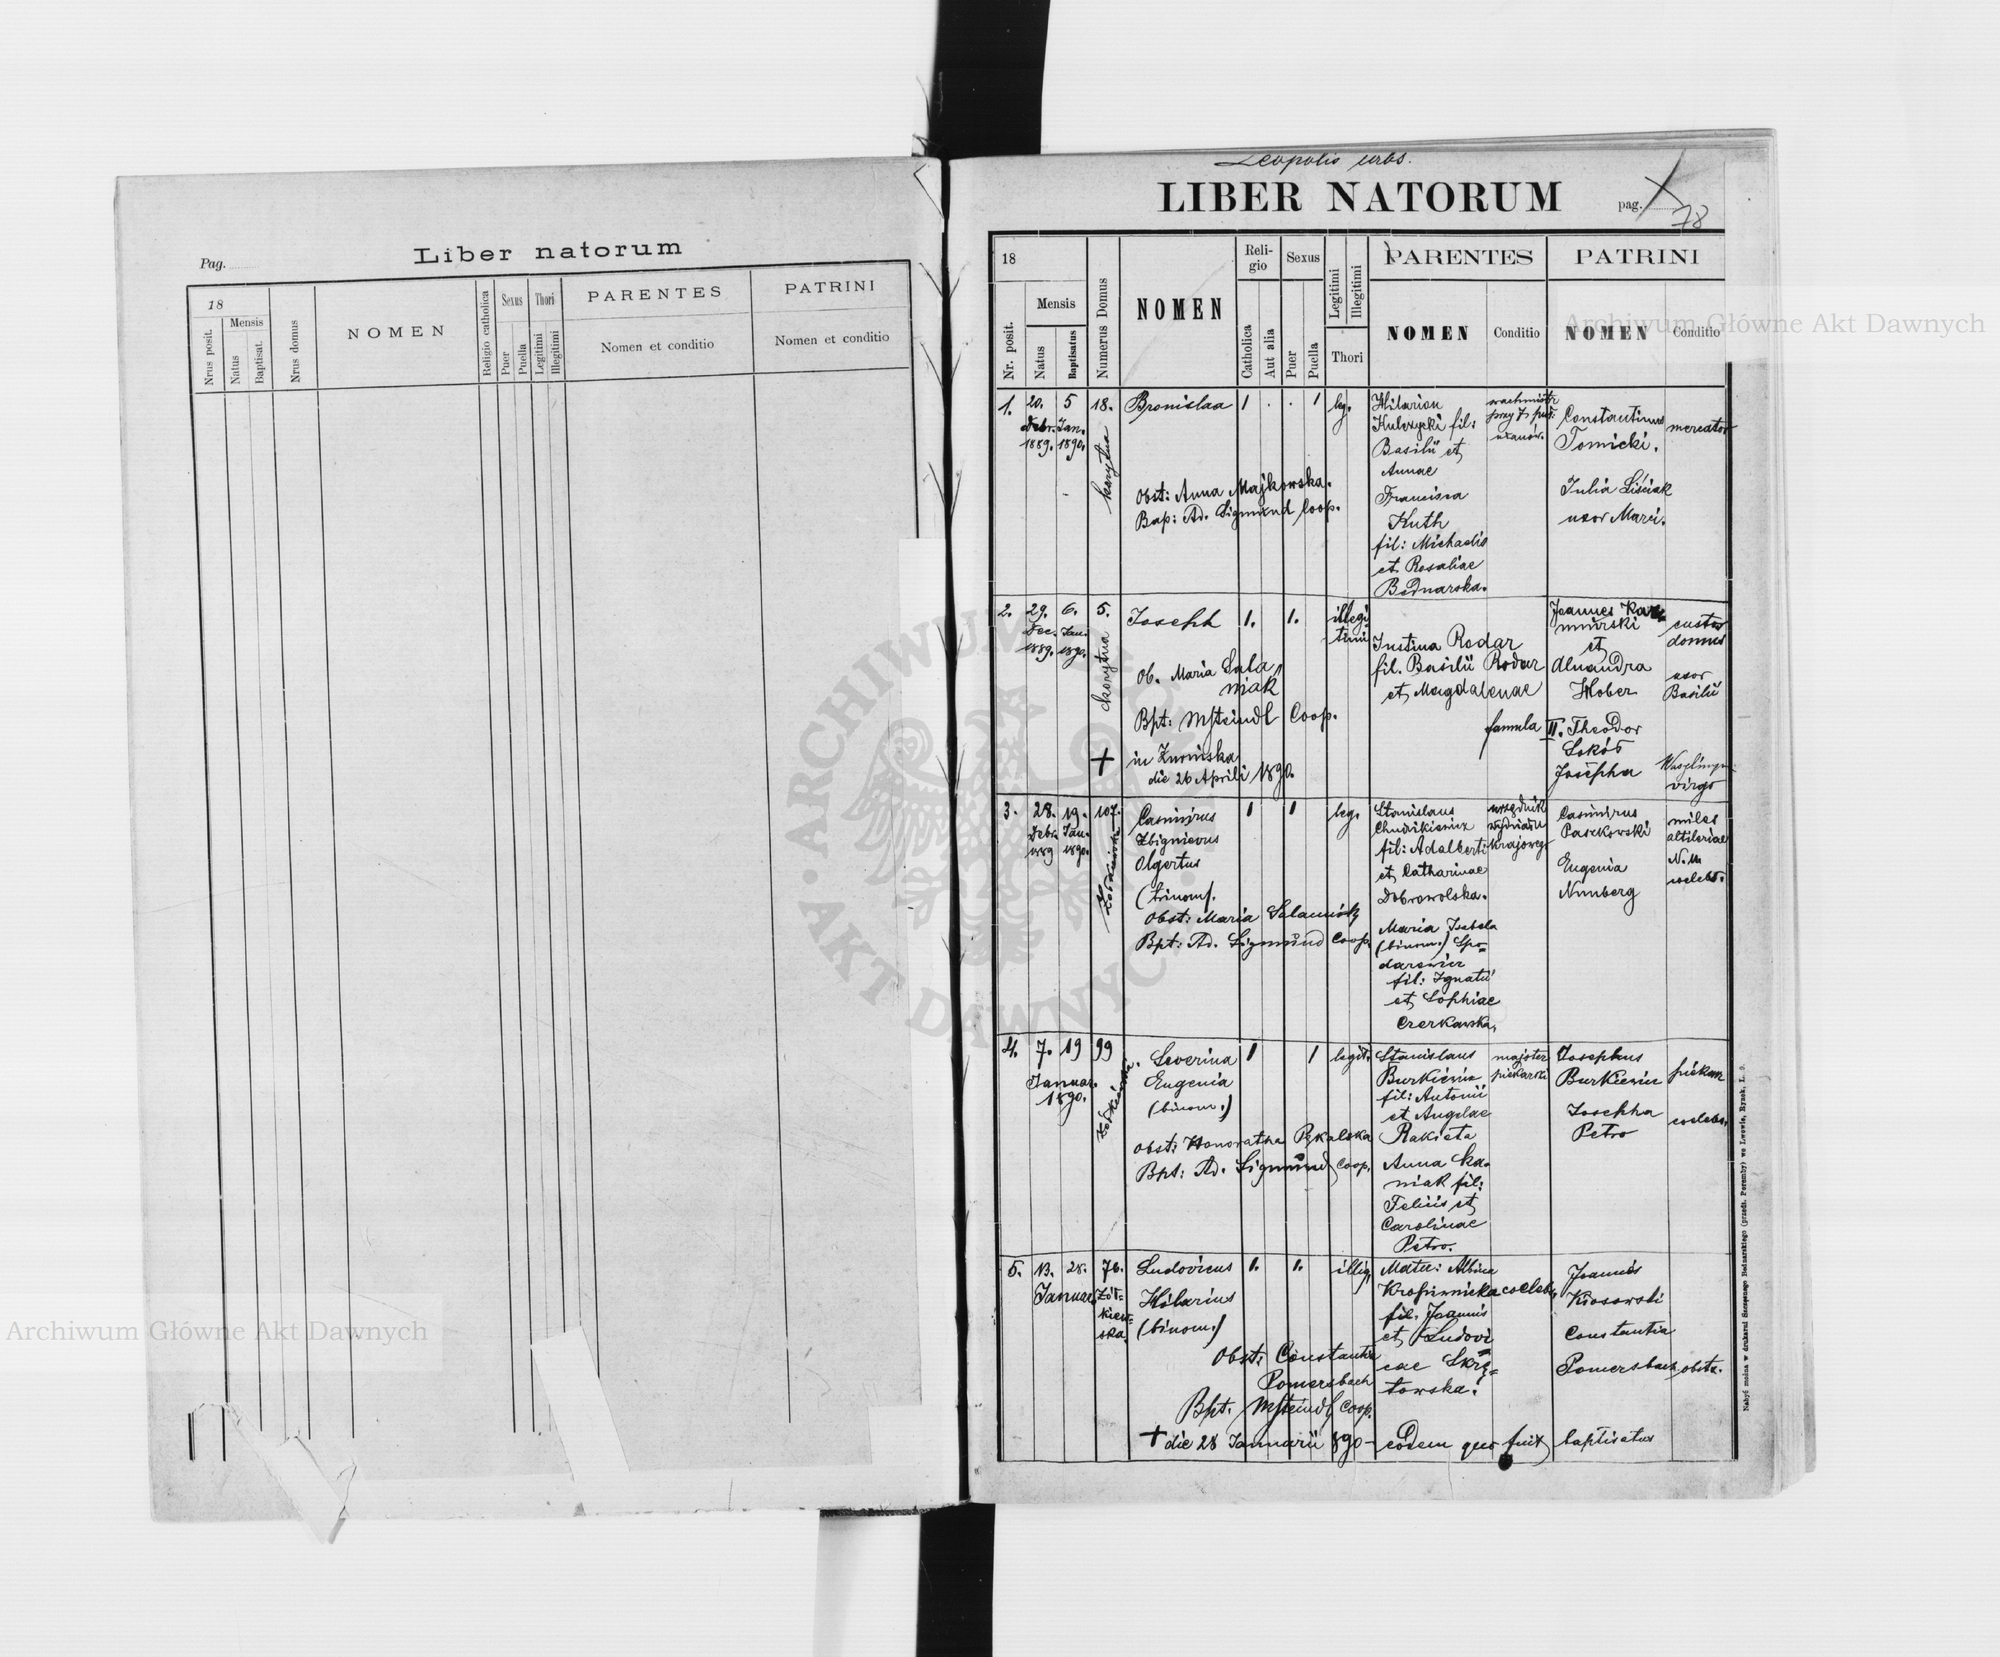 Pag.
Liber natorum
18
Mensis
Nrus posit.
Natus
Baptisat.
Nrus domus
NOMEN
Religio catholica
Sexus
Puer
Puella
Thori
Legitimi
Illegitimi
PARENTES
Nomen et conditio
PATRINI
Nomen et conditio
Leopolis urbs.
LIBER NATORUM
pag.
78
18
Nr. posit.
Mensis
Natus
Baptisatus
Numerus Domus
NOMEN
Reli-
gio
Catholica
Aut alia
Sexus
Puer
Puella
Legitimi
Illegitimi
Thori
PARENTES
NOMEN
Conditio
PATRINI
NOMEN
Conditio
1.
20.
Debr.
1889.
5
Jan.
1890.
18.
Bronislaa
1 . . 1
leg.
Obst: Anna Majkowska.
Bap: Ad. Sigmund Coop.
Hilarion
Kulczycki fil:
Basilii et
Annae
Francisca
Kuth
fil: Michaelis
et Rosaliae
Bednarska.
Constantinus
Tomicki.
mercator
Julia Liściak
uxor Marci.
2.
29.
Dec.
1889.
6.
Jan.
1890.
5.
Joseph
1. 1.
illegi
timi
Ob. Maria Sala
niak
Bpt: MSteindl Coop.
+
die 26 Aprili 1890.
Justina Rodar
fil. Basilii Rodar
et Magdalenae
famula
Joannes
et
custos
domus
Hober
uxor
Basilii
II. Theodor
Josepha
virgo
3.
28.
Debr.
1889
19.
Jan.
1890.
107.
Casimirus
Zbignievus
Olgertus
(trinom).
1 1
leg.
Obst: Maria
Bpt: Ad. Sigmund Coop.
Stanislaus
fil: Adalberti
et Catharinae
Dobrowolska.
Maria Isabela
(binom.) Spo-
darewicz
fil: Ignatii
et Sophiae
Czerkawska.
krajoweg.
Casimirus
Paszkowski
miles
Eugenia
Nirnberg
4.
7.
Januar.
1890.
19
99
Severina
Eugenia
(binom.)
1 1
legit.
Obst: Honoratha Pękalska
Bpt: Ad. Sigmund Coop.
Stanislaus
Burkiewicz
fil: Antonii
et Angelae
Rakieta
Anna Ka-
niak fil:
Felicis et
Carolinae
Petro.
majster
piekarski
Josephus
Burkiewicz
piekarz
Josepha
Petro
coelebs.
5.
13.
Januar.
28.
76.
Żół-
kiew-
ska
Ludovicus
Hilarius
(binom.)
1. 1.
illig.
Obst: Constantia
Pomersbach
Bpt. MSteindl Coop.
Mater: Albina
Kropiwnicka coelebs,
fil. Joannis
et Ludovi
cae Skrzę-
towska.
Joannes
Kosowski
Constantia
Pomersbach obstr.
+ die 28 Januarii 890 - eodem quo fuit baptisatus
Nabyć można w drukarni Szczęsnego Bednarskiego (przedt. Poremby) we Lwowie, Rynek, L. 9.
Archiwum Główne Akt Dawnych
Archiwum Główne Akt Dawnych
ARCHIWUM
AKT DAWNYCH